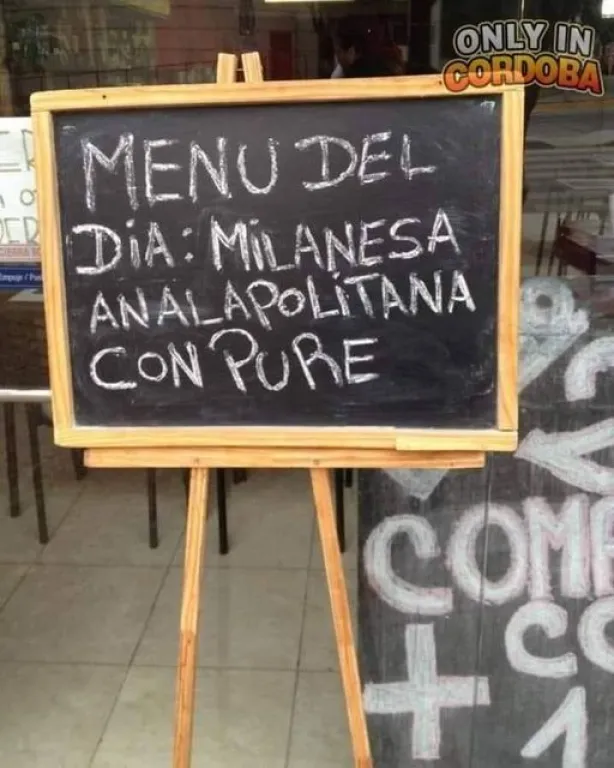 ONLY IN
CORDOBA
MENU DEL
DIA: MILANESA
ANALAPOLITANA
CON PURE
Empuje / Pus
COM
+
CO
1